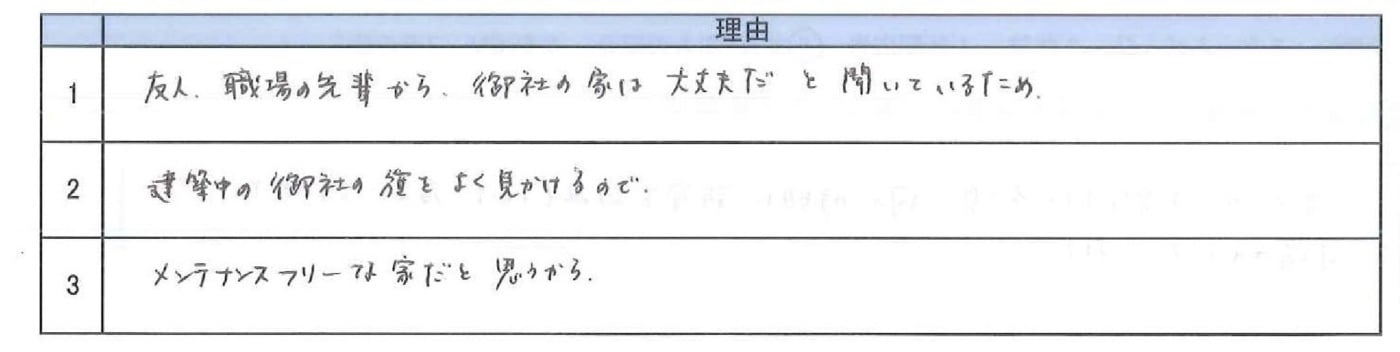 理由
1 友人、職場の先輩から、御社の家は大丈夫だと聞いているため.
2 建築中の御社の旗をよく見かけるので.
3 メンテナンスフリーな家だと思うから.